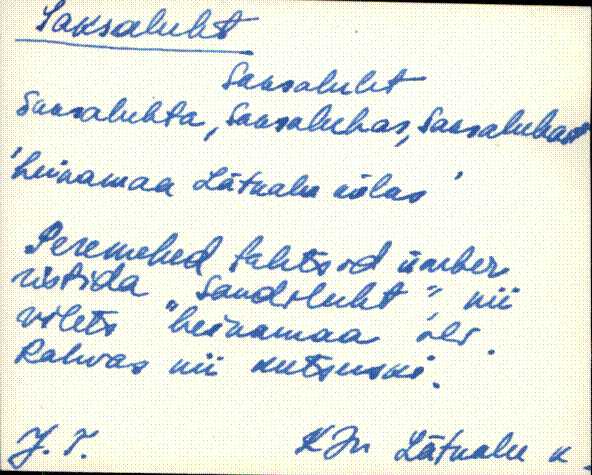 Saksaluht
Saksaluht
Saksaluhta, Saksaluhas, Saksaluhast
'heinamaa Lätkalu külas'
Peremehed tahtsod ümber
ristida "Sandiluht", nii
vilets heinamaa oli.
Rahvas nii kutsuski.
J. T.
KJn Lätkalu k.